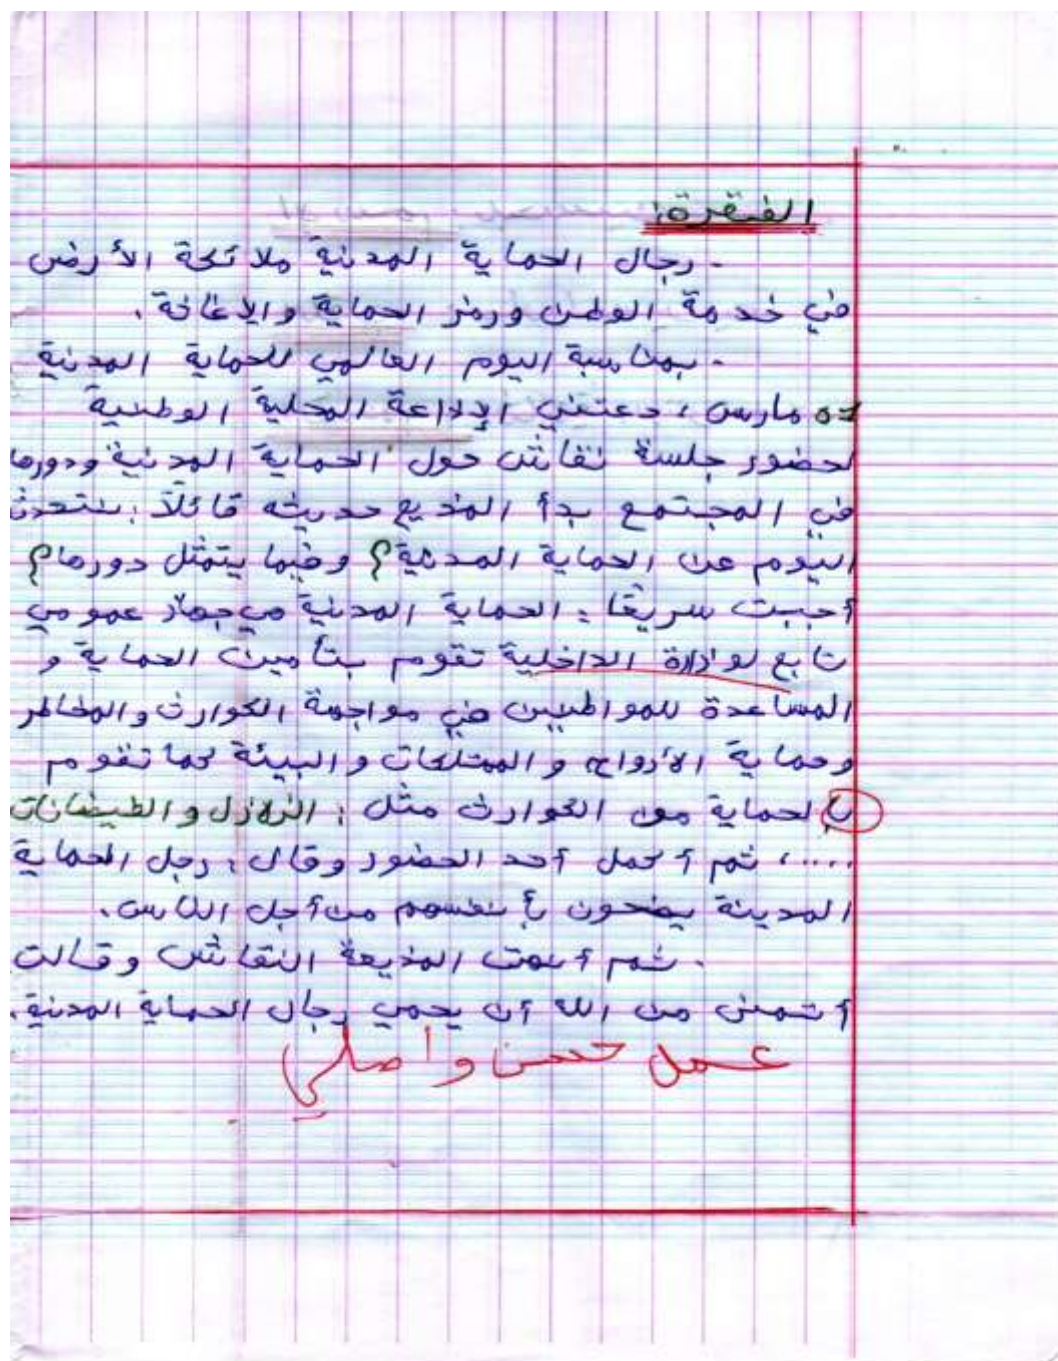 الفقرة:
- رجال الحماية المدنية ملائكة الأرض
في خدمة الوطن ورمز الحماية والإغاثة.
- بمناسبة اليوم العالمي للحماية المدنية
مارس، دعتني الإذاعة المحلية الوطنية
لحضور جلسة نقاش حول الحماية المدنية ودورها
في المجتمع بدأ المذيع حديثه قائلا: سنتحدث
اليوم عن الحماية المدنية؟ وفيما يتمثل دورها؟
أجبت سريعًا: الحماية المدنية هي جهاز عمومي
تابع لوزارة الداخلية تقوم بتأمين الحماية و
المساعدة للمواطنين في مواجهة الكوارث والمخاطر
وحماية الأرواح والممتلكات والبيئة كما تقوم
بالحماية من الكوارث مثل: الزلازل والفيضانات
.....، ثم أكمل أحد الحضور وقال: رجل الحماية
المدينة يضحون بأنفسهم من أجل الناس.
- ثم أنهت المذيعة النقاش وقالت
أتمنى من الله أن يحمي رجال الحماية المدنية.
عمل حسن واصلي